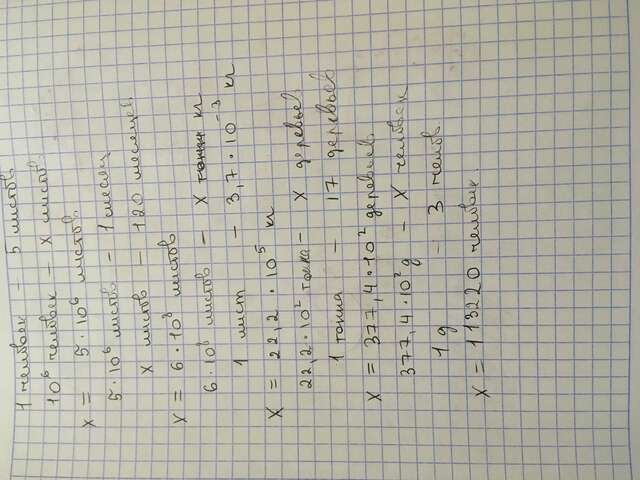 1 человек - 5 листов
10⁶ человек - x листов
x = 5·10⁶ листов
5·10⁶ листов - 1 месяц
x листов - 120 месяцев
x = 6·10⁸ листов
6·10⁸ листов - x тонн кг
1 лист - 3,7·10⁻³ кг
x = 22,2·10⁵ кг
22,2·10² тонна - x деревьев
1 тонна - 17 деревьев
x = 377,4·10² деревьев
377,4·10² д - x человек
1 д - 3 челов
x = 113220 человек.